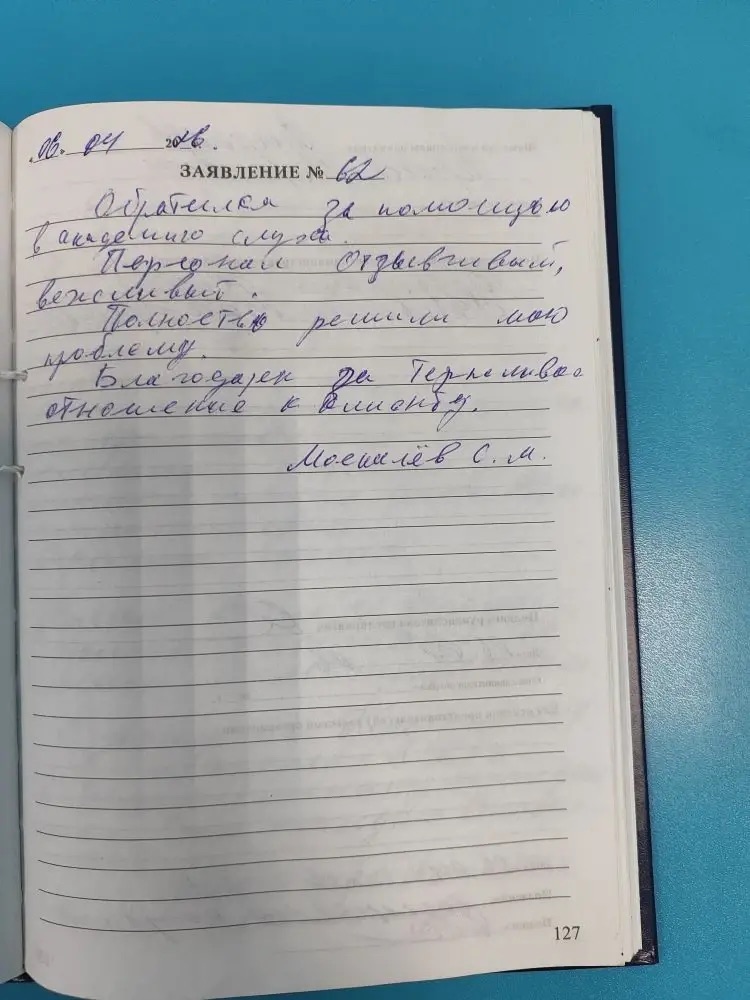 06. 04 2026.
ЗАЯВЛЕНИЕ № 62
Обратился за помощью
в академию слуха.
Персонал отзывчивый,
вежливый.
Полностью решили мою
проблему.
Благодарен за терпеливое
отношение к клиенту.
Москалёв С. М.
127